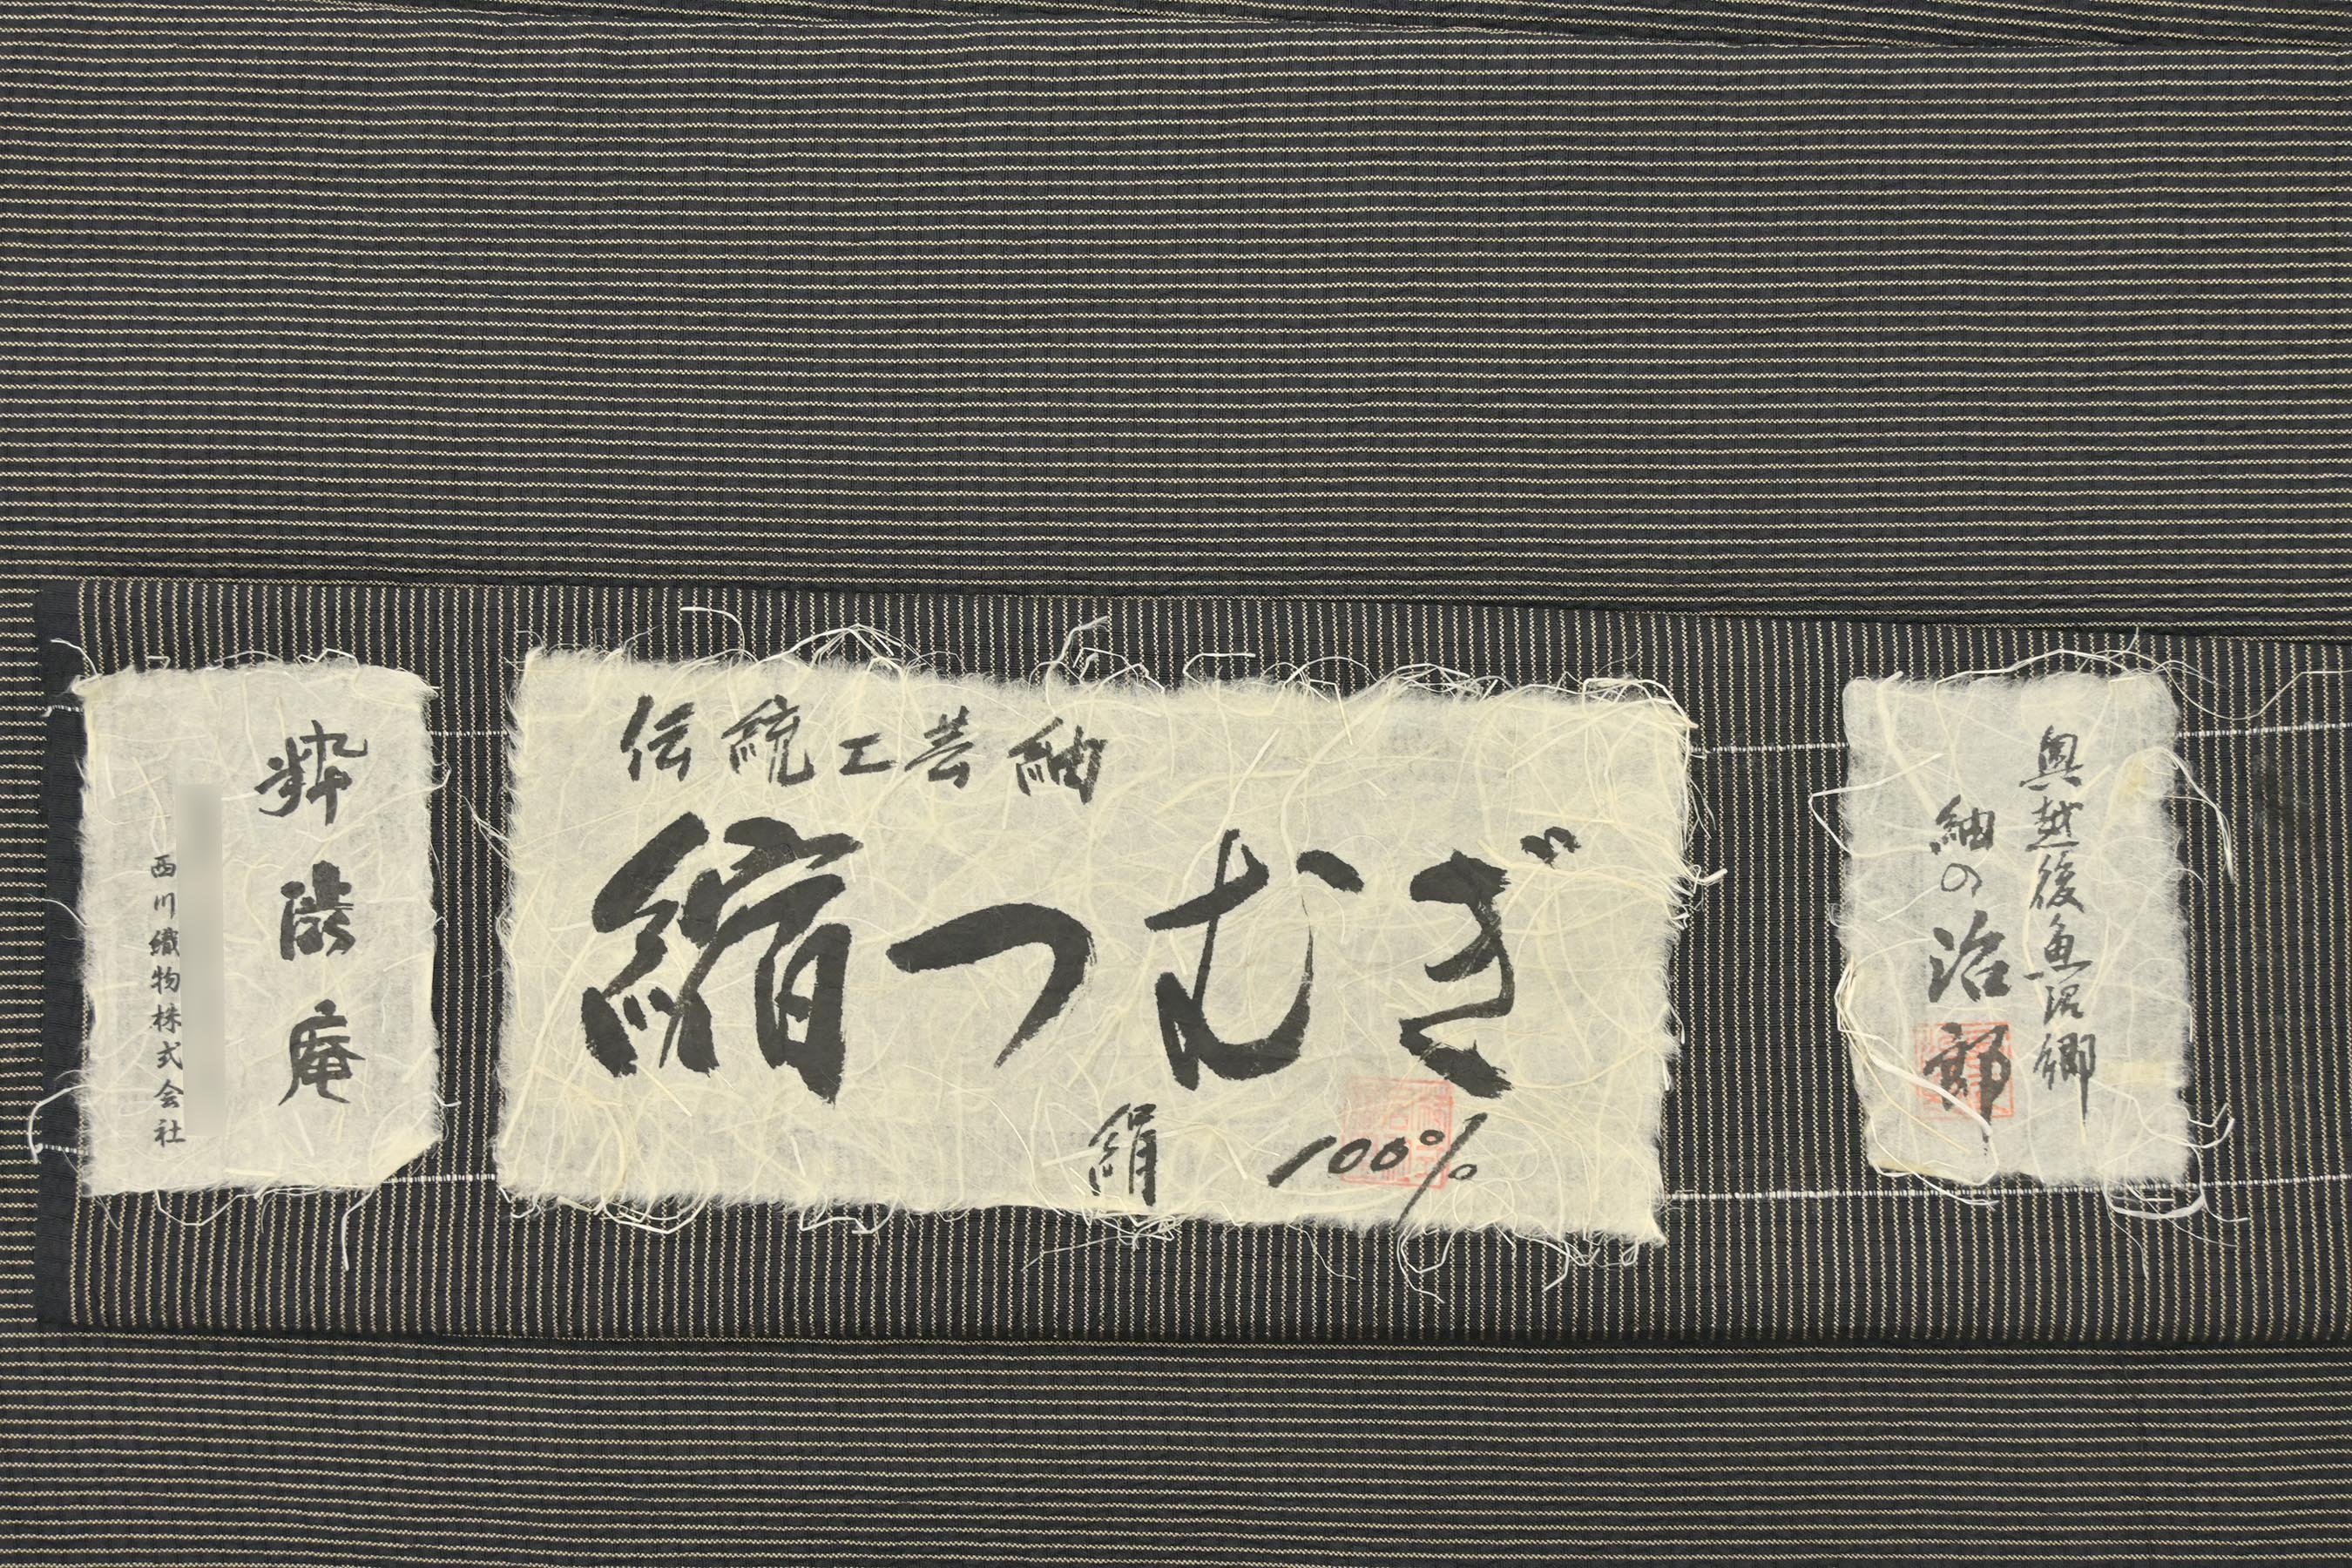 伝統工芸紬
縮つむぎ
絹 100%
奥越後魚沼郷
紬の治郎
粋
庵
西川織物株式会社